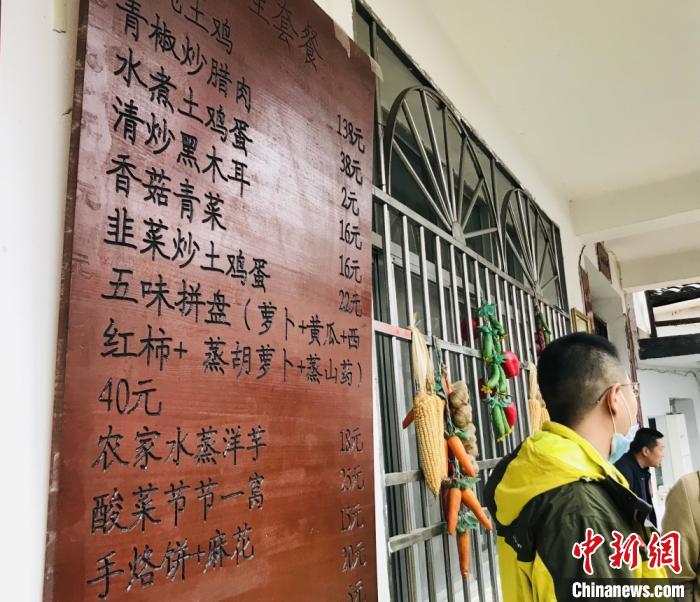 套餐
土鸡 138元
青椒炒腊肉 38元
水煮土鸡蛋 2元
清炒黑木耳 16元
香菇青菜 16元
韭菜炒土鸡蛋 22元
五味拼盘（萝卜+黄瓜+西
红柿+ 蒸胡萝卜+蒸山药）
40元
农家水蒸洋芋 18元
酸菜节节一窝 25元
手烙饼+麻花 15元
中新网
Chinanews.com